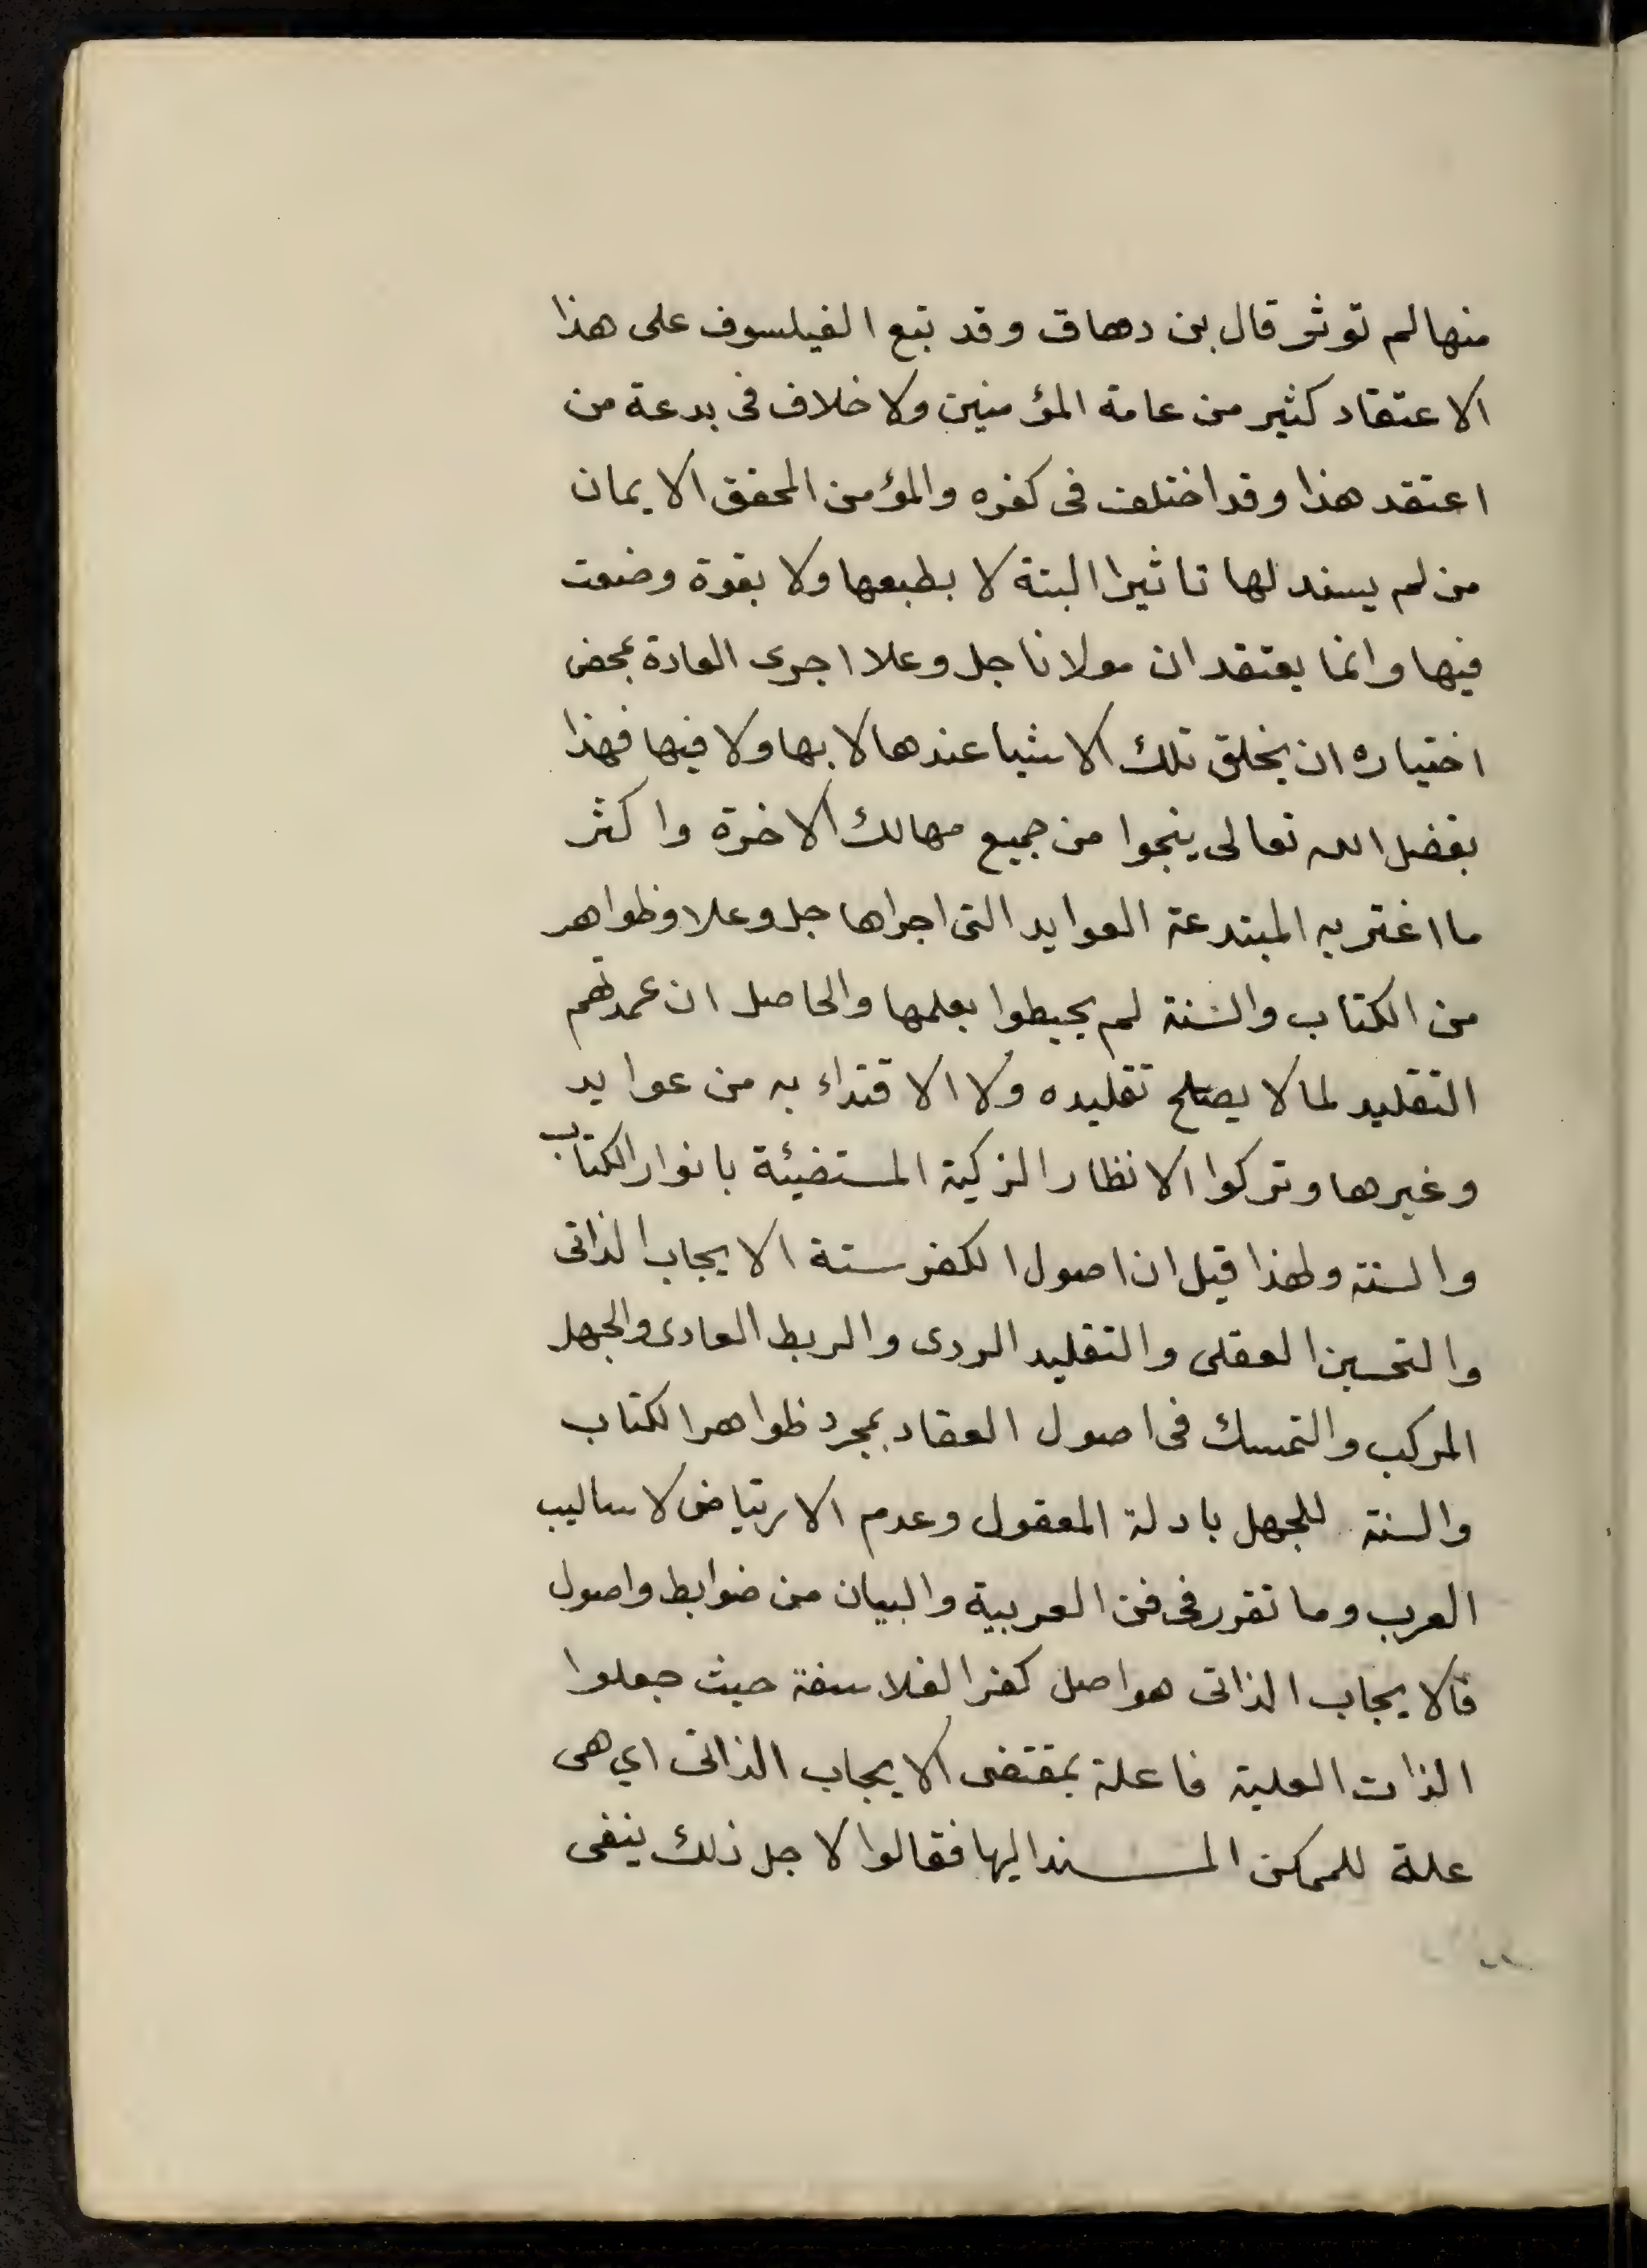 منها لم توثر قال بن دهاق وقد تبع الفيلسوف على هذا
الاعتقاد كثير من عامة المؤمنين ولا خلاف فى بدعة من
اعتقد هذا وقد اختلف فى كفره والمؤمن المحقق الايمان
من لم يسند لها تاثيرا البتة لا بطبعها ولا بقوة وضعت
فيها وانما يعتقد ان مولانا جل وعلا اجرى العادة بمحض
اختياره ان يخلق تلك الاشيا عندها لا بها ولا فيها فهذا
بفضل الله تعالى ينجوا من جميع مهالك الاخرة واكثر
ما اغتر به المبتدعة العوايد التى اجراها جل وعلا وظواهر
من الكتاب والسنة لم يحيطوا بعلمها والحاصل ان عمدتهم
التقليد لما لا يصلح تقليده ولا الاقتداء به من عوايد
وغيرها وتركوا الانظار الزكية المستضيئة بانوار الكتاب
والسنة ولهذا قيل ان اصول الكفر ستة الايجاب الذاتى
والتحسين العقلى والتقليد الردى والربط العادى والجهل
المركب والتمسك فى اصول العقاد بمجرد ظواهر الكتاب
والسنة للجهل بادلة المعقول وعدم الارتياض لاساليب
العرب وما تقرر فى فن العربية والبيان من ضوابط واصول
فالايجاب الذاتى هو اصل كفر الفلاسفة حيث جعلوا
الذات العلية فاعلة بمقتضى الايجاب الذاتى اي هى
علة للممكن المسند اليها فقالوا لاجل ذلك ينفى